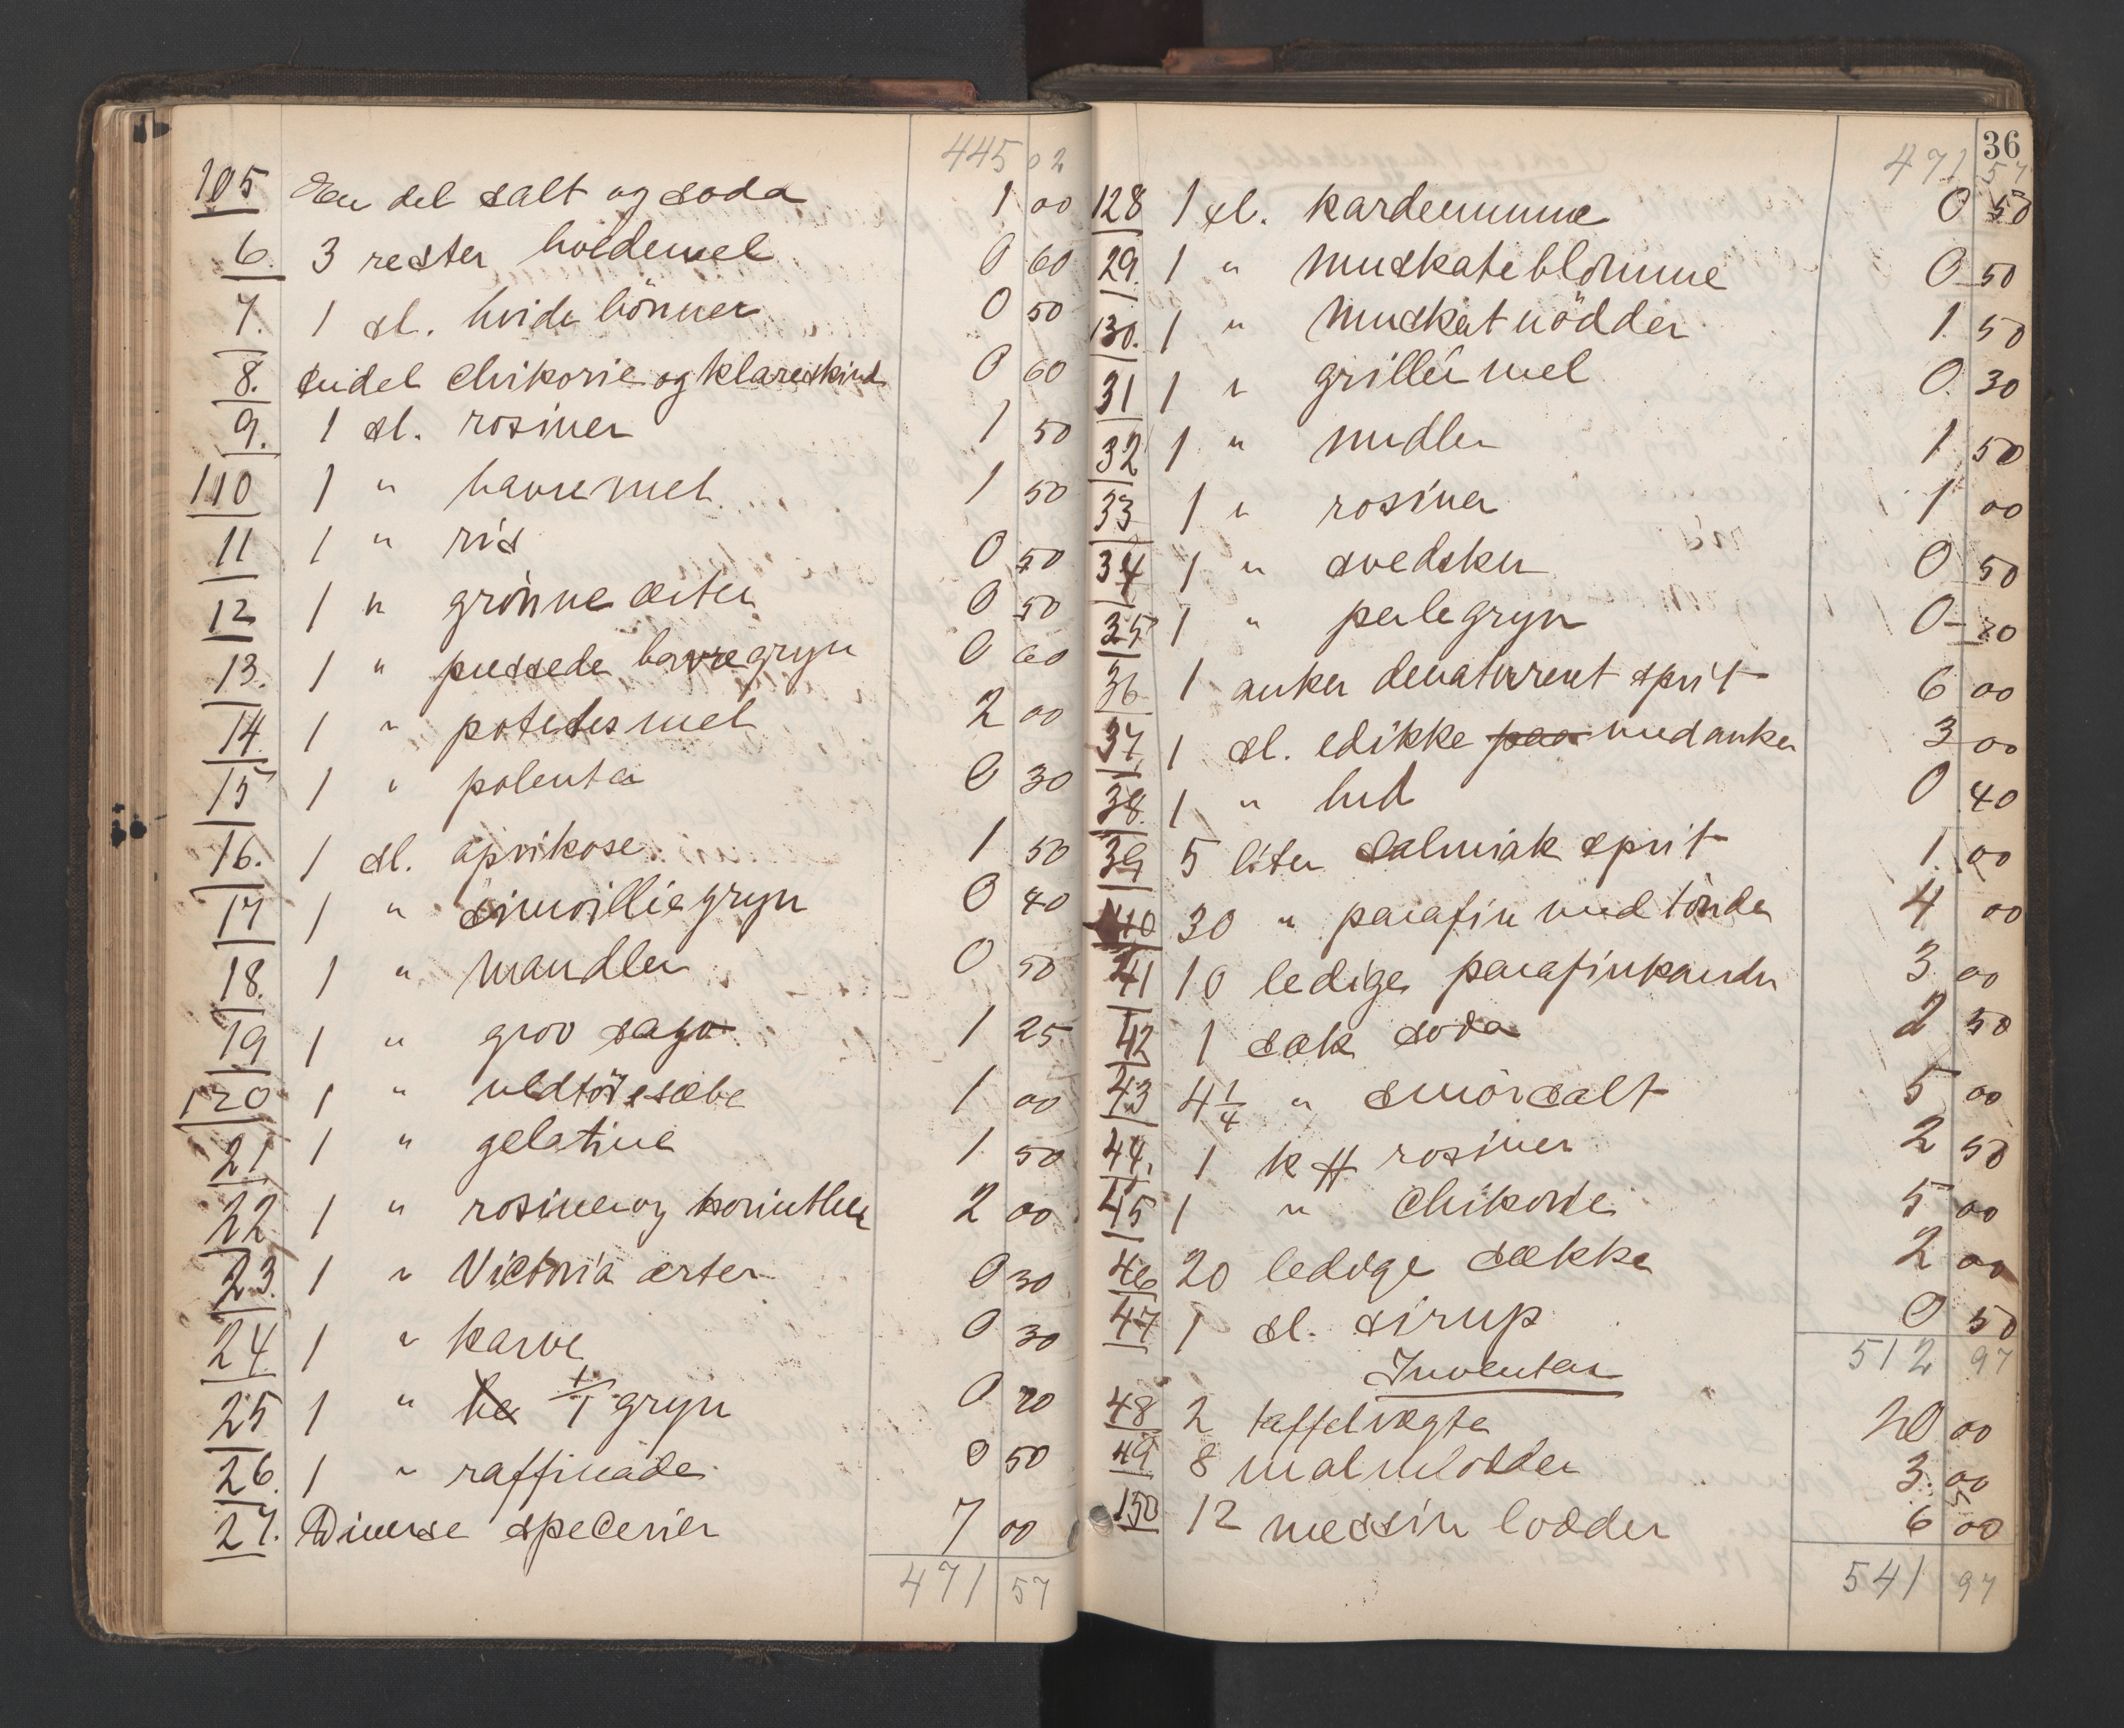 445 02
105 En del salt og soda 1 00
6. 3 rester hvedemel 0 60
7. 1 sl. hvide bönner 0 50
8. Endel chikorie og klareskind 0 60
9. 1 sl. rosiner 1 50
110 1 " havremel 1 50
11 1 " ris 0 50
12 1 " grönne ærter 0 50
13. 1 " pressede havregryn 0 60
14. 1 " potetesmel 2 00
15 1 " polenta 0 30
16. 1 sl. aprikose 1 50
17 1 " simoilliegryn 0 40
18. 1 " mandler 0 50
19 1 " grov sago 1 25
120 1 " uldtöisæbe 1 00
21. 1 " gelatine 1 50
22 1 " rosiner og korinther 2 00
23. 1 " Victoria ærter 0 30
24 1 " karve 0 30
25 1 " 1/1 gryn 0 20
26. 1 " raffinade 0 50
27. Diverse specerier 7 00
471 57
36
471 57
128 1 sl. kardemumme 0 50
29. 1 " muskateblomme 0 50
130. 1 " muskatnödder 1 50
31 1 " grillérmel 0 30
32 1 " nudler 1 50
33 1 " rosiner 1 00
34 1 " svedsker 0 50
35 1 " perlegryn 0 20
36 1 anker denaturert sprit 6 00
37. 1 sl. edikke paa med anker 3 00
38. 1 " lud 0 40
39 5 liter salmiak sprit 1 00
40 30 " parafin med tönde 4 00
41 10 ledige parafinkander 3 00
42 1 sæk soda 2 50
43 4 1/4 " smörsalt 5 00
44. 1 k ff rosiner 2 50
45 1 " chikorie 5 00
46 20 ledige sække 2 00
47 1 sl. sirup 0 50
512 97
Inventar
48 2 taffelvægte 20 00
49 8 malmlodder 3 00
150 12 messin lodder 6 00
541 97